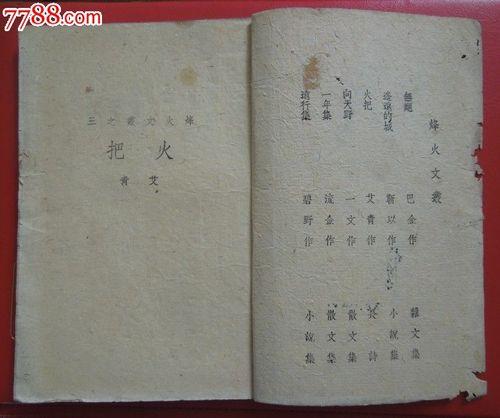 7788.com
烽火文叢
無題 巴金作 雜文集
遙遠的城 靳以作 小說集
火把 艾青作 長詩
向天野 一文作 散文集
一年集 流金作 散文集
遠行集 碧野作 小說集
烽火文叢之三
火把
艾青